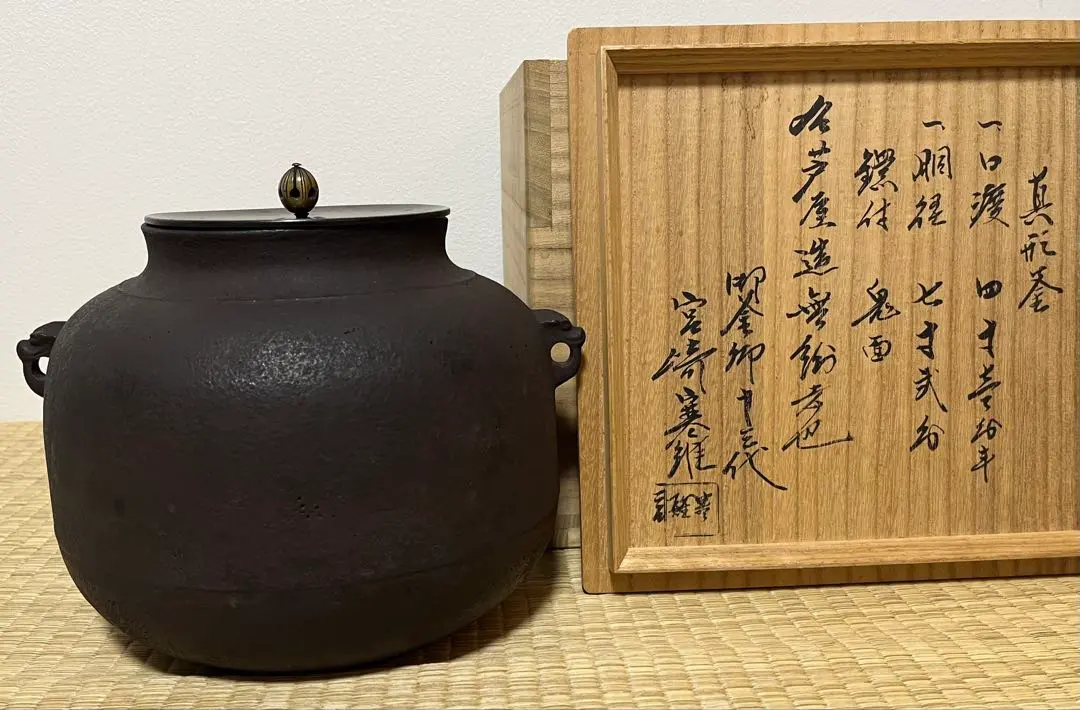 真形釜
一口渡 四寸壱分半
一胴径 七寸弐分
鐶付 鬼面
右芦屋造無紛者也
御釜師十三代
宮崎寒雉